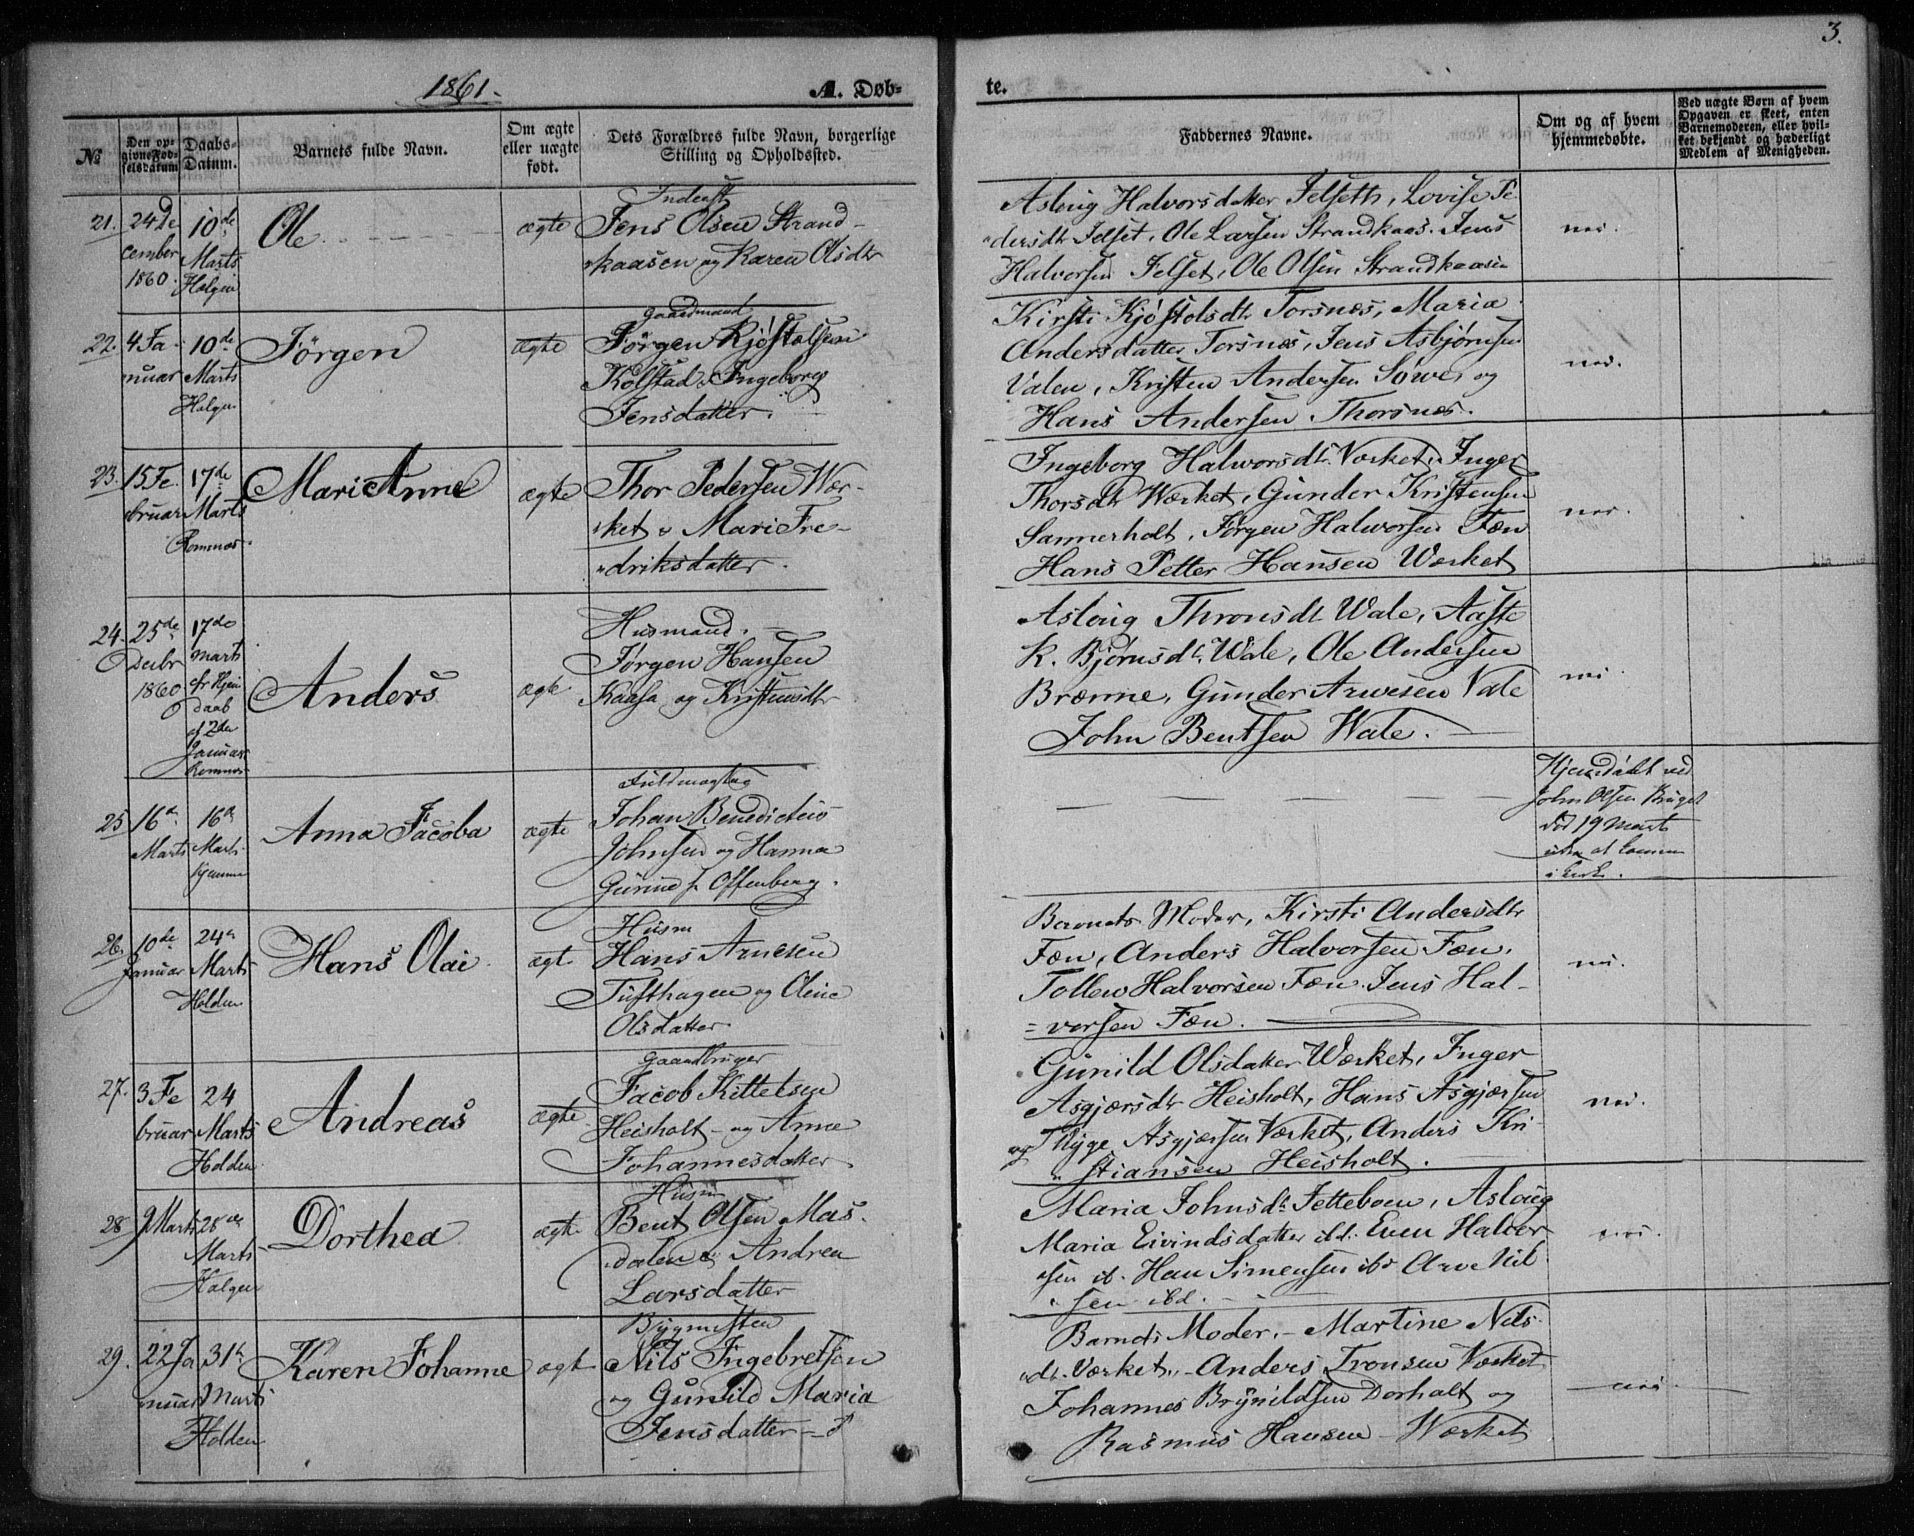 3.
1861.
A. Døb-
te.
No
Den op-
givne Fød-
selsdatum
Daabs-
Datum.
Barnets fulde Navn.
Om ægte
eller uægte
født.
Dets Forældres fulde Navn, borgerlige
Stilling og Opholdssted.
Faddernes Navne.
Om og af hvem
hjemmedøbte.
Ved uægte Børn af hvem
Opgaven er skeet, enten
Barnemoderen, eller hvil-
ket bekjendt og hæderligt
Medlem af Menigheden.
21.
24 De
cember
1860.
10de
Marts
Helgen
Ole
ægte
Inderst
Jens Olsen Strand-
kaasen og Karen Olsdtr
Aslaug Halvorsdatter Jelseth, Lovise Pe
dersdtr Jelset, Ole Larsen Strandkaas. Jens
Halvorsen Jelset, Ole Olsen Strandkaasen
nei.
22.
4 Ja-
nuar
10de
Marts
Helgen
Jörgen
ægte
Gaardmand
Jörgen Kjöstolsen
Kolstad & Ingeborg
Jensdatter.
Kirsti Kjøstolsdtr Torsnæs, Maria
Andersdatter Torsnæs, Jens Asbjørnsen
Valen, Kristen Andersen Sove, og
Hans Andersen Thorsnæs.
nei.
23.
15 Fe-
bruar
17de
Marts
Romnæs.
Mari Anne
ægte
Thor Pedersen Vær-
ket & Mari Fre-
driksdatter.
Ingeborg Halvorsdtr Værket, Inger
Thorsdtr Værket, Gunder Kristensen
Sannerholt, Jørgen Halvorsen Fæn
Hans Petter Hansen Værket
nei.
24.
25de
Decbr
1860
17de
Marts
efr Hjem
daab
af 2den
Januar
Romnæs
Anders
ægte
Husmand.
Jörgen Hansen
Kaasa og Kristensdtr
Aslaug Thronsdtr Vale, Aaste
K. Bjørnsdtr Vale, Ole Andersen
Brænne, Gunder Arvesen Vale
John Bentsen Vale.
nei.
25
16de
Marts
16de
Marts
hjemme
Anna Jacoba
ægte
Fuldmægtig
Johan Benedictus
Johnsen og Hanna
Gurine f. Offenberg.
Hjemdöbt ved
John Olsen Bruget
död 19 Marts
uden at komme
i Kirke.
26.
10de
Januar
24de
Marts
Holden
Hans Olai.
ægt.
Husm
Hans Arnesen
Tufthagen og Oline
Olsdatter.
Barnets Moder, Kirsti Andersdtr
Fæn, Anders Halvorsen Fæn,
Tollev Halvorsen Fæn. Jens Hal-
vorsen Fæn.
nei.
27.
3 Fe
bruar
24
Marts
Holden
Andreas
ægte
Gaardbruger
Jacob Kittelsen
Heisholt og Anne
Johannesdatter
Gunild Olsdatter Værket, Inger
Asgjærsdtr Heisholt, Hans Asgjærsen
og Thyge Asgjærsen Værket, Anders Kri-
stiansen Heisholt.
nei.
28
9 Marts
28de
Marts
Helgen
Dorthea
ægt.
Husm
Bent Olsen Mas-
dalen & Andrea
Larsdatter
Maria Johnsdtr Tetteboen, Aslaug
Maria Eivindsdatter ibd. Even Halvor
sen ib. Hans Simensen ib. Arve Nil
sen ibd.
nei.
29.
22 Ja
nuar
31te
Marts
Holden
Karen Johanne
ægt.
Bygmester
Nils Ingebretsen
og Gunild Maria
Jensdatter
Barnets Moder, Martine Nils-
dtr. Værket, Anders Tronsen Værket
Johannes Brynildsen Dorholt og
Rasmus Hansen Værket
nei.